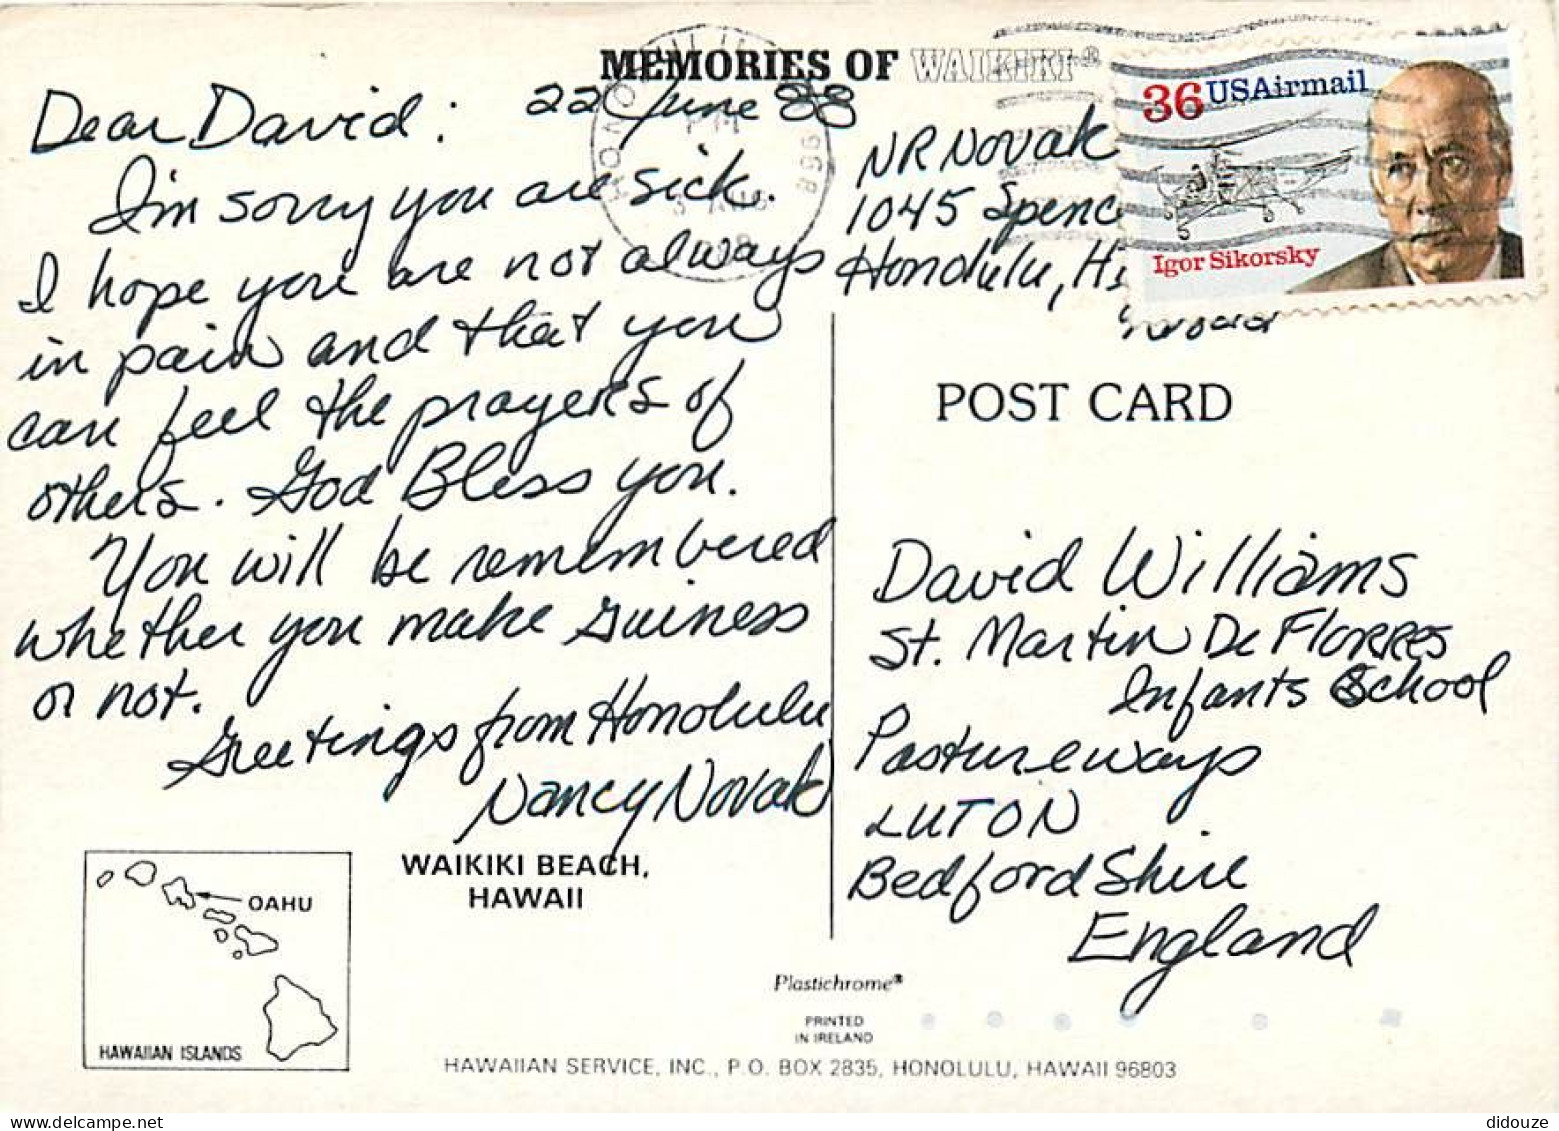 MEMORIES OF WAIKIKI®
Dear David: 22 June 88
I'm sorry you are sick.
I hope you are not always
in pain and that you
can feel the prayers of
others. God Bless you.
You will be remembered
whether you make Guiness
or not.
Greetings from Honolulu
Nancy Novak
WAIKIKI BEACH,
HAWAII
OAHU
HAWAIIAN ISLANDS
NR Novak
1045 Spenc
Honolulu, HI
36 USAirmail
Igor Sikorsky
POST CARD
David Williams
St. Martin De FLORRES
Infants School
Pastureways
LUTON
Bedford Shire
England
Plastichrome®
PRINTED
IN IRELAND
HAWAIIAN SERVICE, INC., P.O. BOX 2835, HONOLULU, HAWAII 96803
didouze